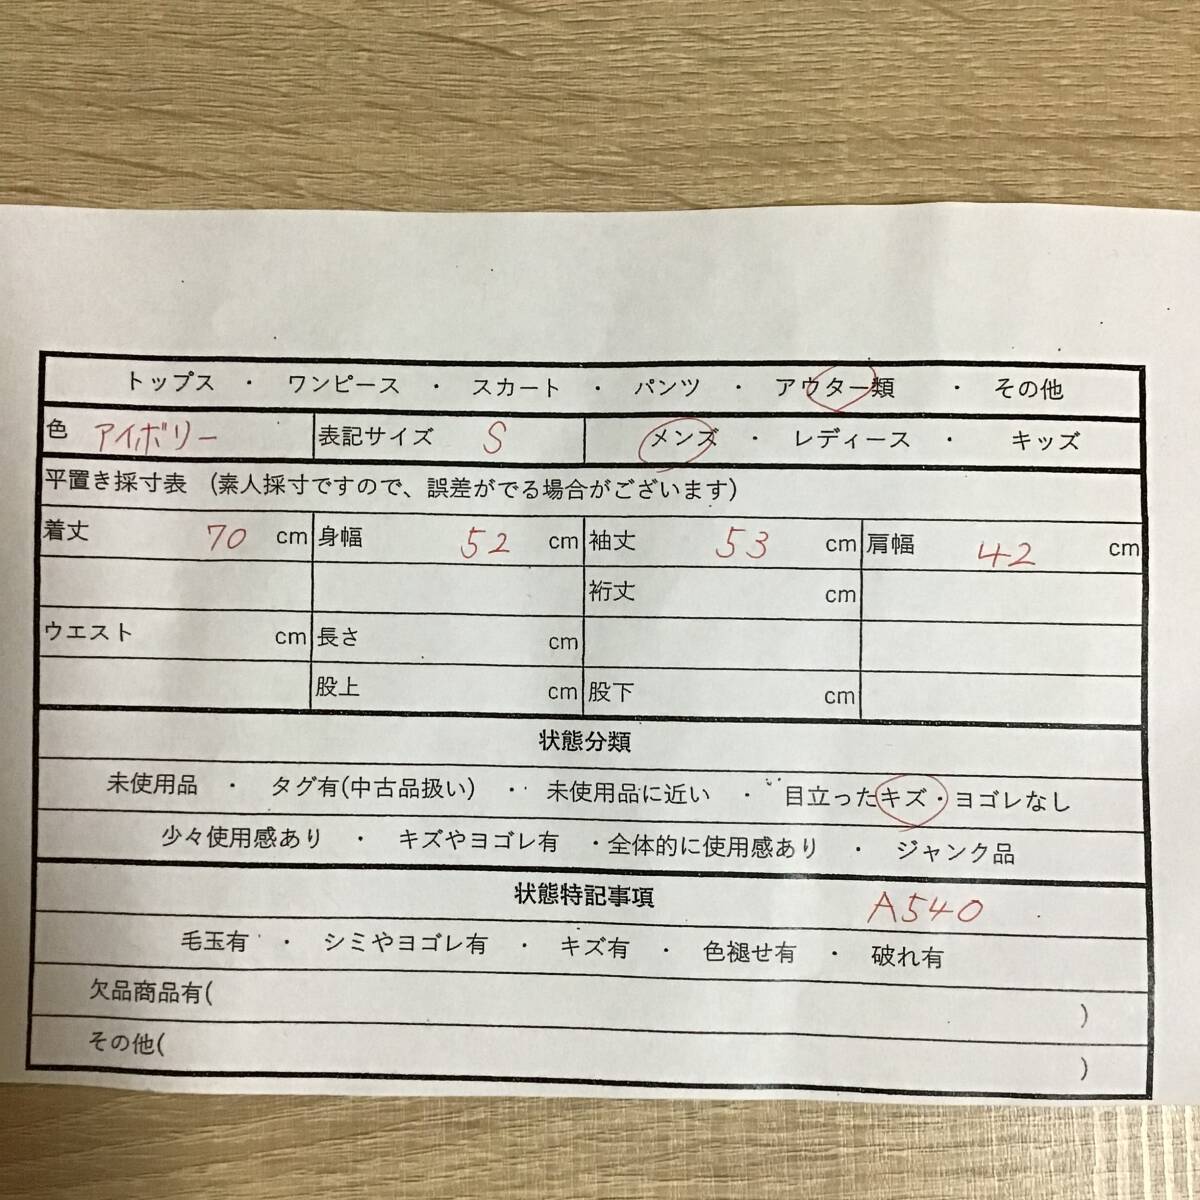 トップス ・ ワンピース ・ スカート ・ パンツ ・ アウター類 ・ その他
色 アイボリー 表記サイズ S メンズ ・ レディース ・ キッズ
平置き採寸表 (素人採寸ですので、誤差がでる場合がございます)
着丈 70 cm 身幅 52 cm 袖丈 53 cm 肩幅 42 cm
裄丈 cm
ウエスト cm 長さ cm
股上 cm 股下 cm
状態分類
未使用品 ・ タグ有(中古品扱い) ・ 未使用品に近い ・ 目立ったキズ・ヨゴレなし
少々使用感あり ・ キズやヨゴレ有 ・全体的に使用感あり ・ ジャンク品
状態特記事項 A540
毛玉有 ・ シミやヨゴレ有 ・ キズ有 ・ 色褪せ有 ・ 破れ有
欠品商品有( )
その他( )